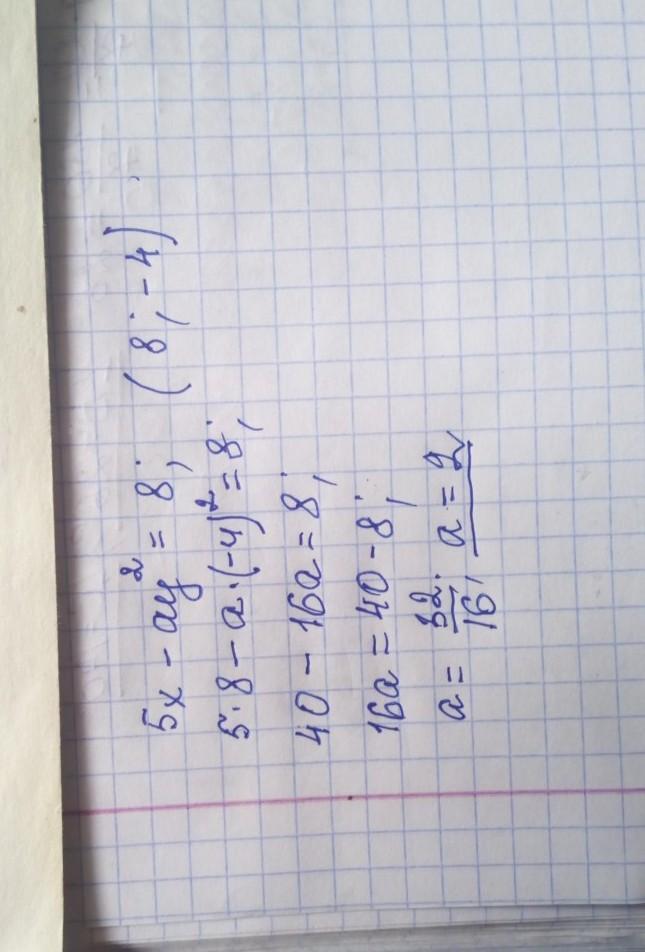 5x - ay² = 8; (8; -4).
5·8 - a·(-4)² = 8;
40 - 16a = 8;
16a = 40 - 8;
a = 32/16; a = 2